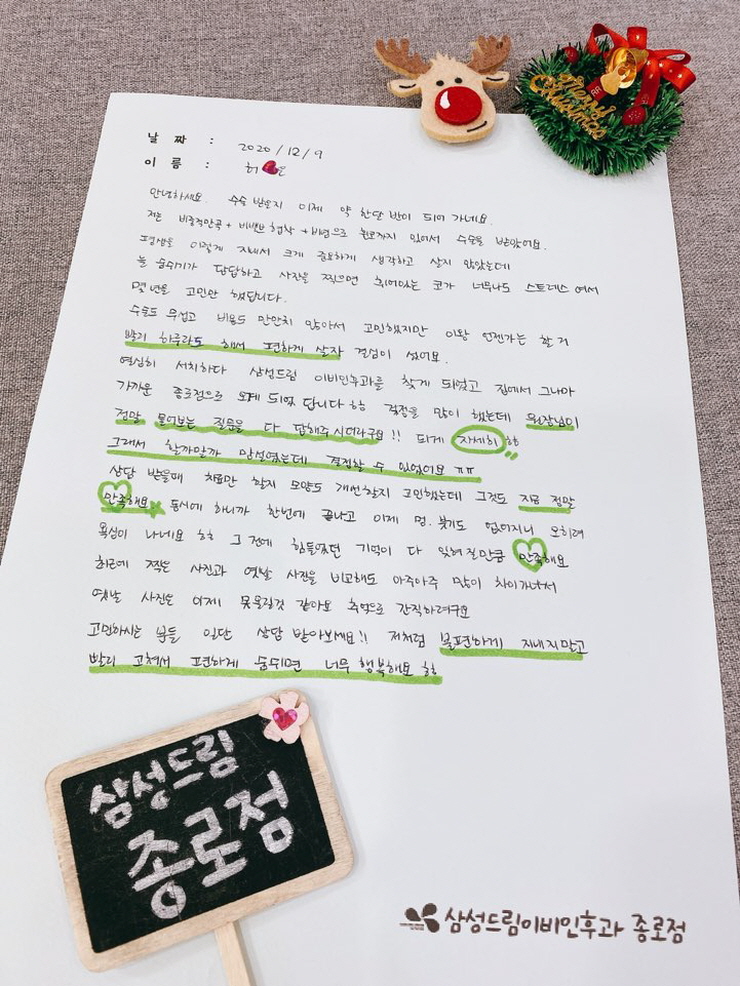 Merry Christmas
날 짜 : 2020 / 12 / 9
이 름 : 허 운
안녕하세요. 수술 받은지 이제 약 한달 반이 되어 가네요.
저는 비중격만곡 + 비밸브 협착 + 비염으로 코까지 있어서 수술을 받았어요.
평생을 이렇게 지내서 크게 중요하게 생각하고 살지 않았는데
늘 숨쉬기가 답답하고 사진을 찍으면 휘어있는 코가 너무나도 스트레스여서
몇 년을 고민만 했답니다.
수술도 무섭고 비용도 만만치 않아서 고민했지만 이왕 언젠가는 할 거
빨리 하루라도 해서 편하게 살자 결심이 섰어요.
열심히 서치하다 삼성드림 이비인후과를 찾게 되었고 집에서 그나마
가까운 종로점으로 오게 되었 답니다 ㅎㅎ 걱정을 많이 했는데 원장님이
정말 물어보는 질문을 다 답해주시더라구요!! 되게 자세히 ㅎㅎ
그래서 할까말까 망설였는데 결정할 수 있었어요 ㅠㅠ
상담 받을때 치료만 할지 모양도 개선할지 고민했는데 그것도 지금 정말
만족해요 동시에 하니까 한번에 끝나고 이제 멍. 붓기도 없어지니 오히려
욕심이 나네요 ㅎㅎ 그 전에 힘들었던 기억이 다 잊혀질만큼 만족해요
최근에 찍은 사진과 옛날 사진을 비교해도 아주아주 많이 차이가나서
옛날 사진은 이제 못올릴것 같아요 추억으로 간직하려구요
고민하시는 분들 일단 상담 받아보세요!! 저처럼 불편하게 지내지말고
빨리 고쳐서 편하게 숨쉬면 너무 행복해요 ㅎㅎ
삼성드림
종로점
삼성드림이비인후과 종로점